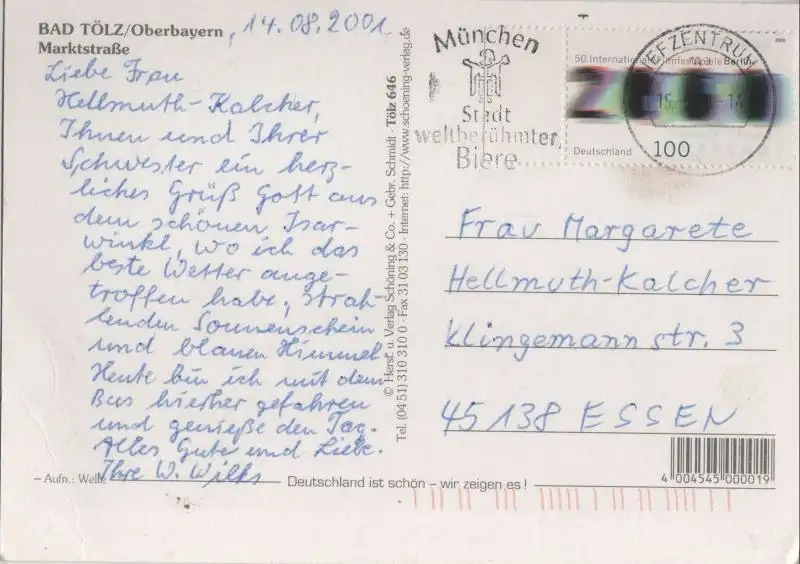 BAD TÖLZ/Oberbayern, 14.08.2001
Marktstraße
Liebe Frau
Hellmuth-Kalcher,
Ihnen und Ihrer
Schwester ein herz-
liches Grüß Gott aus
dem schönen Isar-
winkl, wo ich das
beste Wetter ange-
troffen habe, strah-
lenden Sonnenschein
und blauen Himmel.
Heute bin ich mit dem
Bus hierher gefahren
und genieße den Tag.
Alles Gute und Liebe.
Ihre W. Wilks
– Aufn.: Welte
Deutschland ist schön – wir zeigen es !
© Herst. u. Verlag Schöning & Co. + Gebr. Schmidt · Tölz 646
Tel. (04 51) 310 310 0 · Fax 31 03 130 · Internet: http://www.schoening-verlag.de
München
Stadt
weltberühmter
Biere
50. Internationale Filmfestspiele Berlin
Deutschland
100
BRIEFZENTRUM
Frau Margarete
Hellmuth-Kalcher
Klingemannstr. 3
45138 ESSEN
4 004545 000019